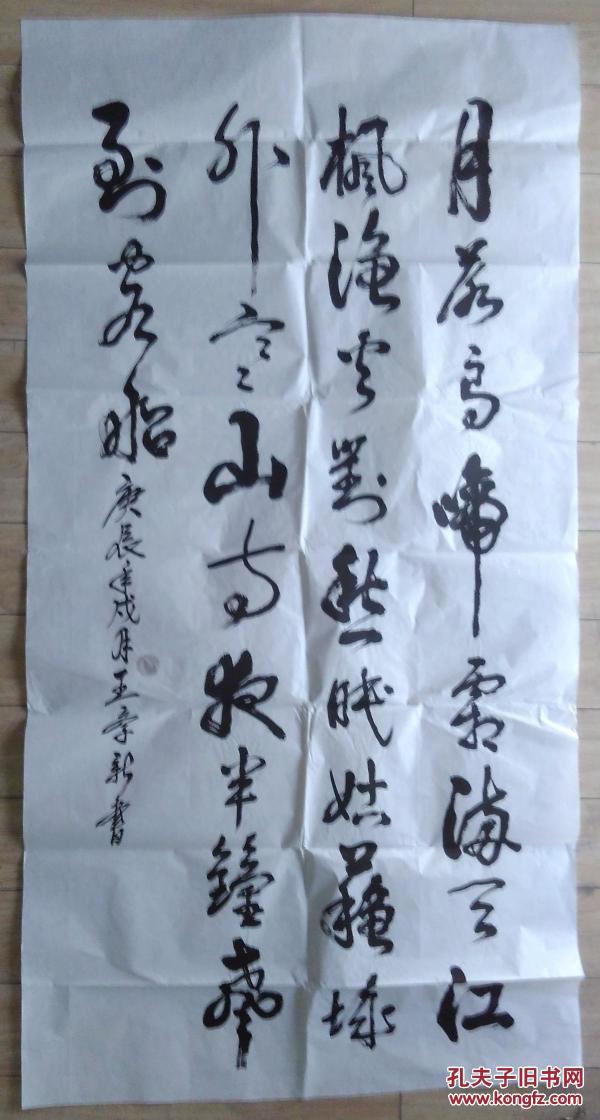 月落烏啼霜滿天江
楓漁火對愁眠姑蘇城
外寒山寺夜半鐘聲
到客船
庚辰年戌月王新書
孔夫子旧书网
www.kongfz.com